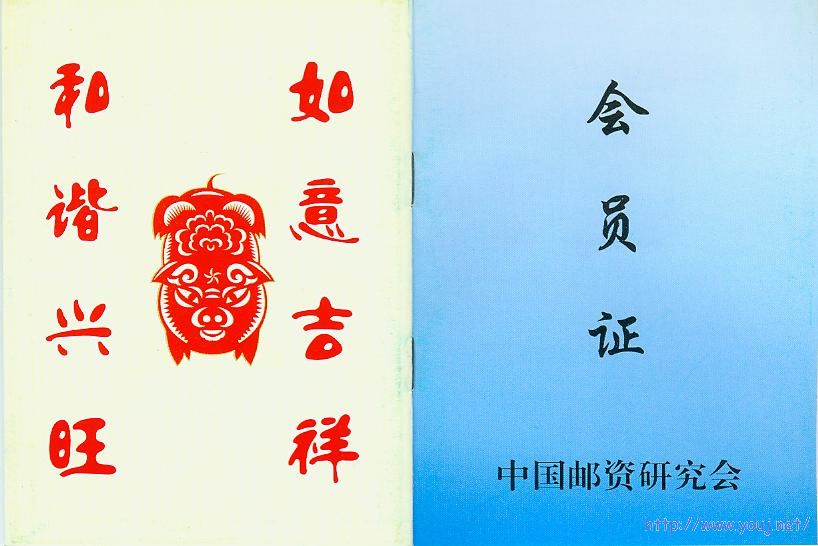 如意吉祥
和谐兴旺
会员证
中国邮资研究会
http://www.youj.net/